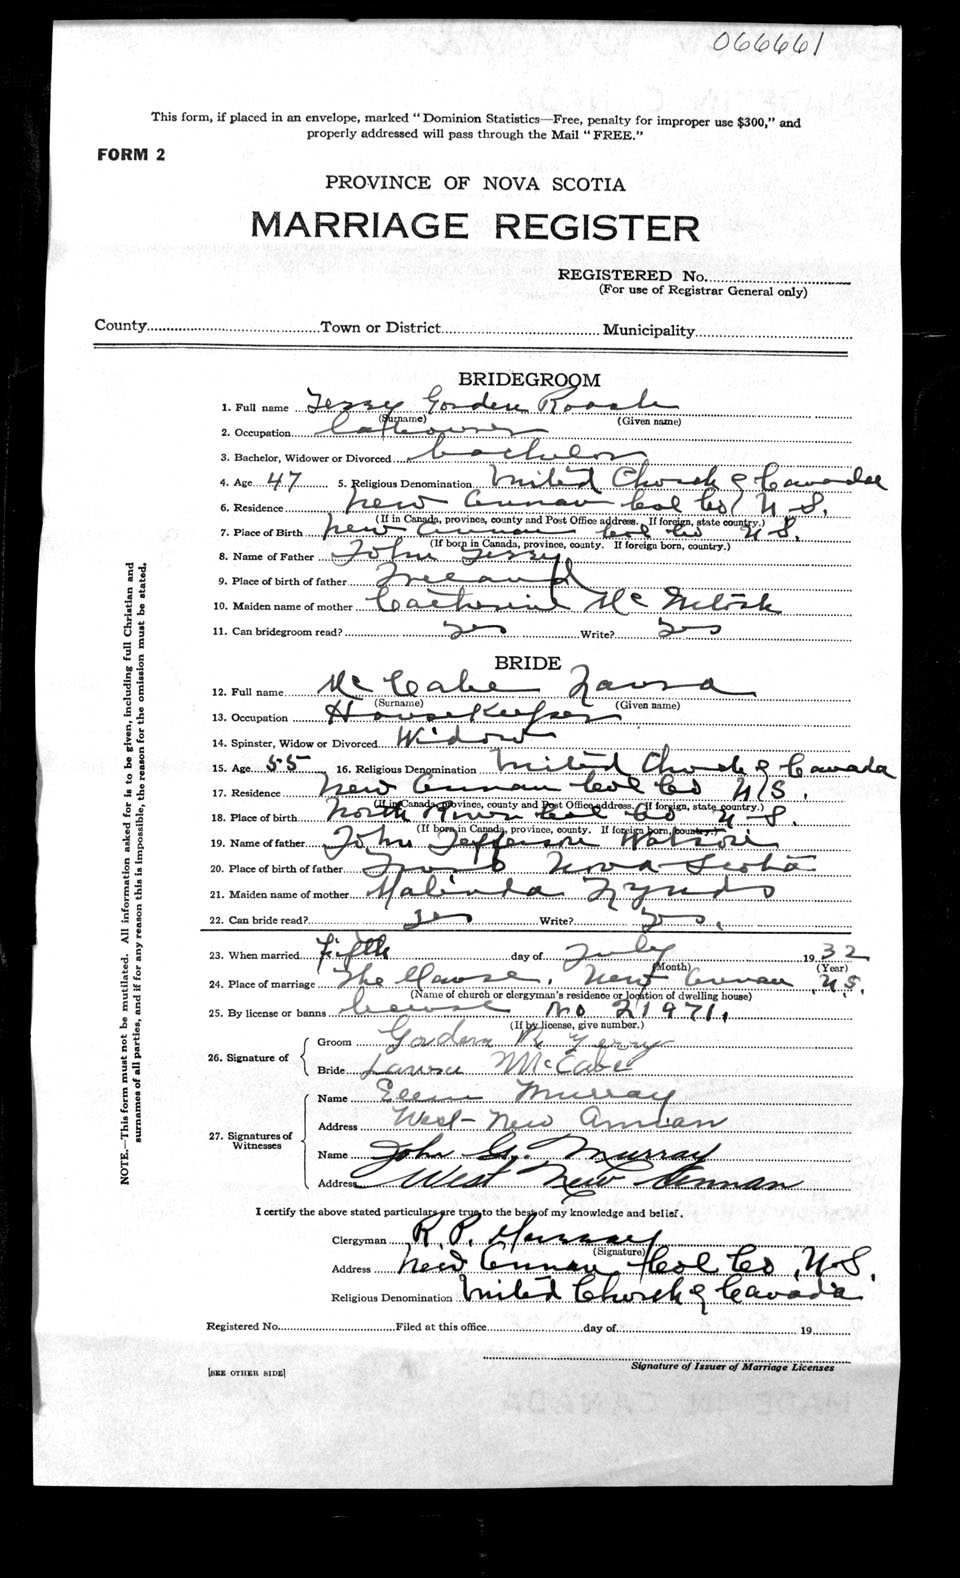 066661
This form, if placed in an envelope, marked "Dominion Statistics—Free, penalty for improper use $300," and
properly addressed will pass through the Mail "FREE."
FORM 2
PROVINCE OF NOVA SCOTIA
MARRIAGE REGISTER
REGISTERED No.
(For use of Registrar General only)
County Town or District Municipality
BRIDEGROOM
1. Full name Terry Gorden Roach
(Surname) (Given name)
2. Occupation
3. Bachelor, Widower or Divorced bachelor
4. Age 47 5. Religious Denomination United Church of Canada
6. Residence New Annan Col Co N.S.
(If in Canada, province, county and Post Office address. If foreign, state country.)
7. Place of Birth New Annan Col Co N.S.
(If born in Canada, province, county. If foreign born, country.)
8. Name of Father John Terry
9. Place of birth of father Ireland
10. Maiden name of mother Catherine McIntosh
11. Can bridegroom read? yes Write? yes
BRIDE
12. Full name McCabe Laura
(Surname) (Given name)
13. Occupation Housekeeper
14. Spinster, Widow or Divorced Widow
15. Age 55 16. Religious Denomination United Church of Canada
17. Residence New Annan Col Co N.S.
(If in Canada, province, county and Post Office address. If foreign, state country.)
18. Place of birth North River Col Co N.S.
(If born in Canada, province, county. If foreign born, country.)
19. Name of father John Jefferson Watson
20. Place of birth of father Nova Scotia
21. Maiden name of mother Malinda Lynds
22. Can bride read? yes Write? yes.
23. When married fifth day of July 1932
(Month) (Year)
24. Place of marriage The Manse, New Annan N.S.
(Name of church or clergyman's residence or location of dwelling house)
25. By license or banns license No 21971.
(If by license, give number.)
26. Signature of
Groom Gordon R. Terry
Bride Laura McCabe
27. Signatures of Witnesses
Name Murray
Address West-New Annan
Name John G. Murray
Address West New Annan
I certify the above stated particulars are true to the best of my knowledge and belief.
Clergyman R. P.
(Signature)
Address New Annan Col Co, N.S.
Religious Denomination United Church of Canada
Registered No. Filed at this office day of 19
Signature of Issuer of Marriage Licenses
[SEE OTHER SIDE]
NOTE.—This form must not be mutilated. All information asked for is to be given, including full Christian and
surnames of all parties, and if for any reason this is impossible, the reason for the omission must be stated.